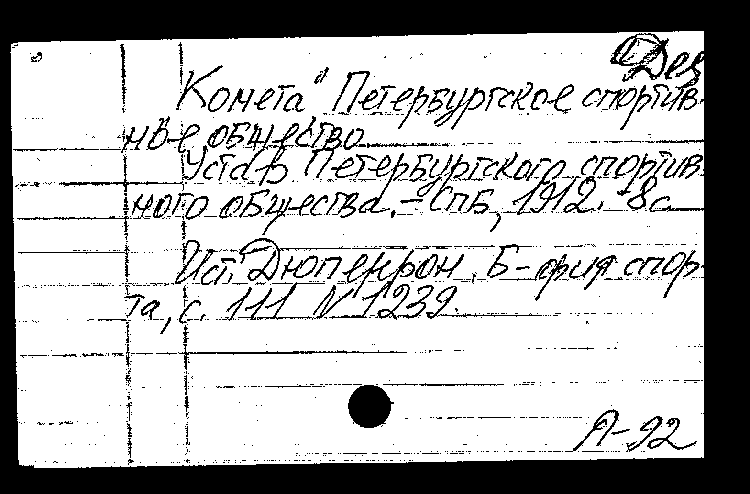 Дез
Комета" Петербургское спортив-
ное общество
Устав Петербургского спортив-
ного общества. - СПБ, 1912. 8с.
Ист. Дюперрон, Б-фия спор-
та, с. 111 N 1239.
Л-92